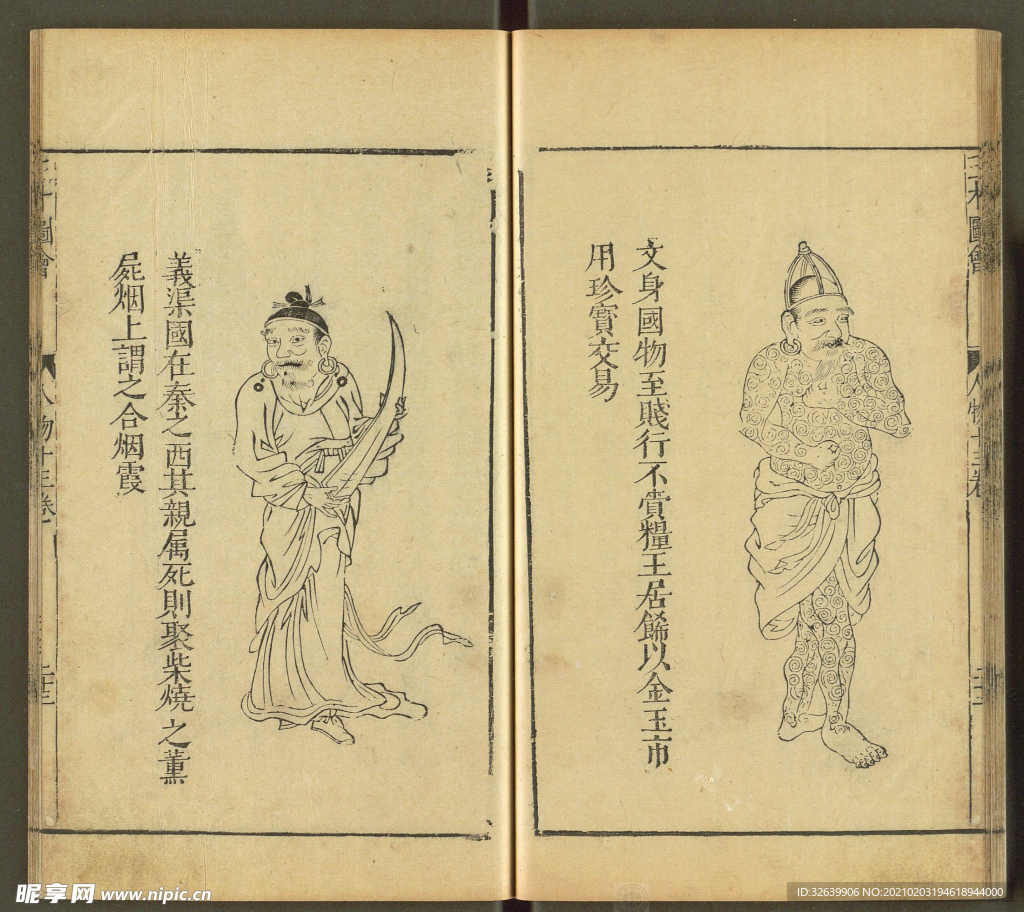 三才圖會
人物十三卷
文身國物至賤行不賫糧王居飾以金玉市
用珍寶交易
義渠國在秦之西其親属死則聚柴燒之薰
屍烟上謂之合烟霞
圖會
人物十三卷
昵享网 www.nipic.cn
ID:32639906 NO:20210203194618944000